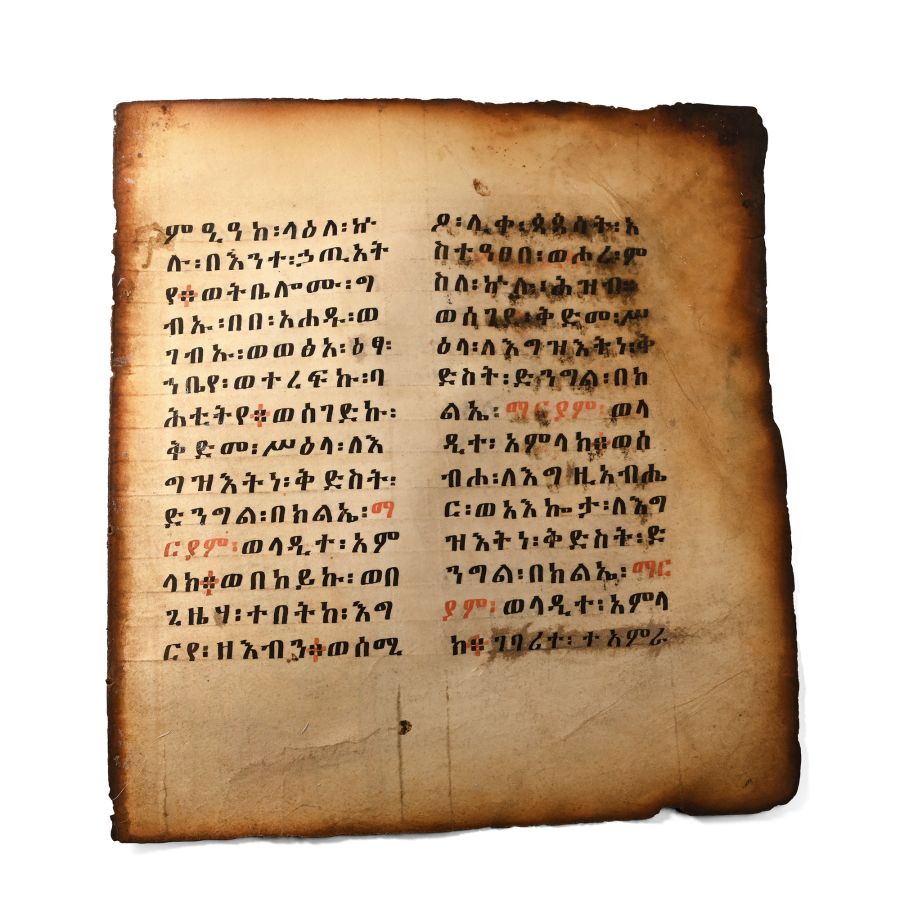 ምዒዓከ፡ላዕለ፡ኵ
ሉ፡በእንተ፡ኃጢአት
የ፨ወትቤሎሙ፡ግ
ብኡ፡በበ፡አሐዱ፡ወ
ገብኡ፡ወወፅአ፡ዕፃ፡
ኀቤየ፡ወተረፍኩ፡ባ
ሕቲትየ፨ወሰገድኩ፡
ቅድመ፡ሥዕላ፡ለእ
ግዝእትነ፡ቅድስት፡
ድንግል፡በክልኤ፡ማ
ርያም፡ወላዲተ፡አም
ላክ፨ወበከይኩ፡ወበ
ጊዜሃ፡ተበትከ፡እግ
ርየ፡ዘእብን፨ወሰሚ
ዖ፡ሊቀ፡ጳጳሳት፡አ
ስተዓፀበ፡ወሖረ፡ም
ስለ፡ኵሉ፡ሕዝብ፡
ወሰገደ፡ቅድመ፡ሥ
ዕላ፡ለእግዝእትነ፡ቅ
ድስት፡ድንግል፡በክ
ልኤ፡ማርያም፡ወላ
ዲተ፡አምላክ፨ወሰ
ብሐ፡ለእግዚአብሔ
ር፡ወአእኰታ፡ለእግ
ዝእትነ፡ቅድስት፡ድ
ንግል፡በክልኤ፡ማር
ያም፡ወላዲተ፡አምላ
ክ፨ገባሪተ፡ተአምራ